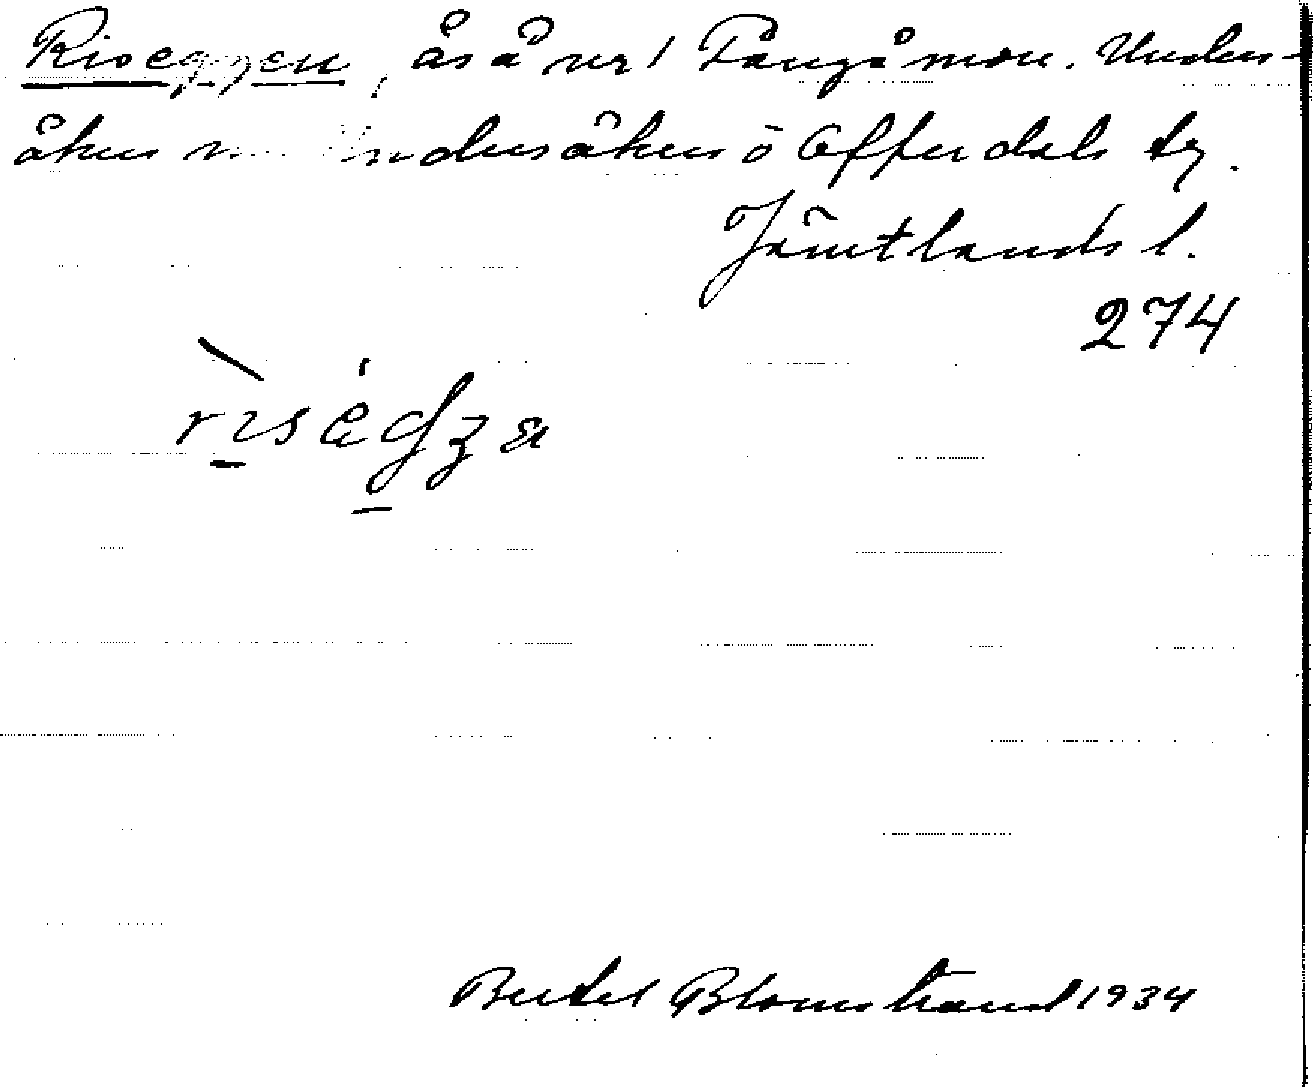 Riseggen, ås å nr 1 Tångåmon. Unders-
åkers  Undersåkers o Offerdals tg.
Jämtlands l.
274
Bertel Blomstrand 1934